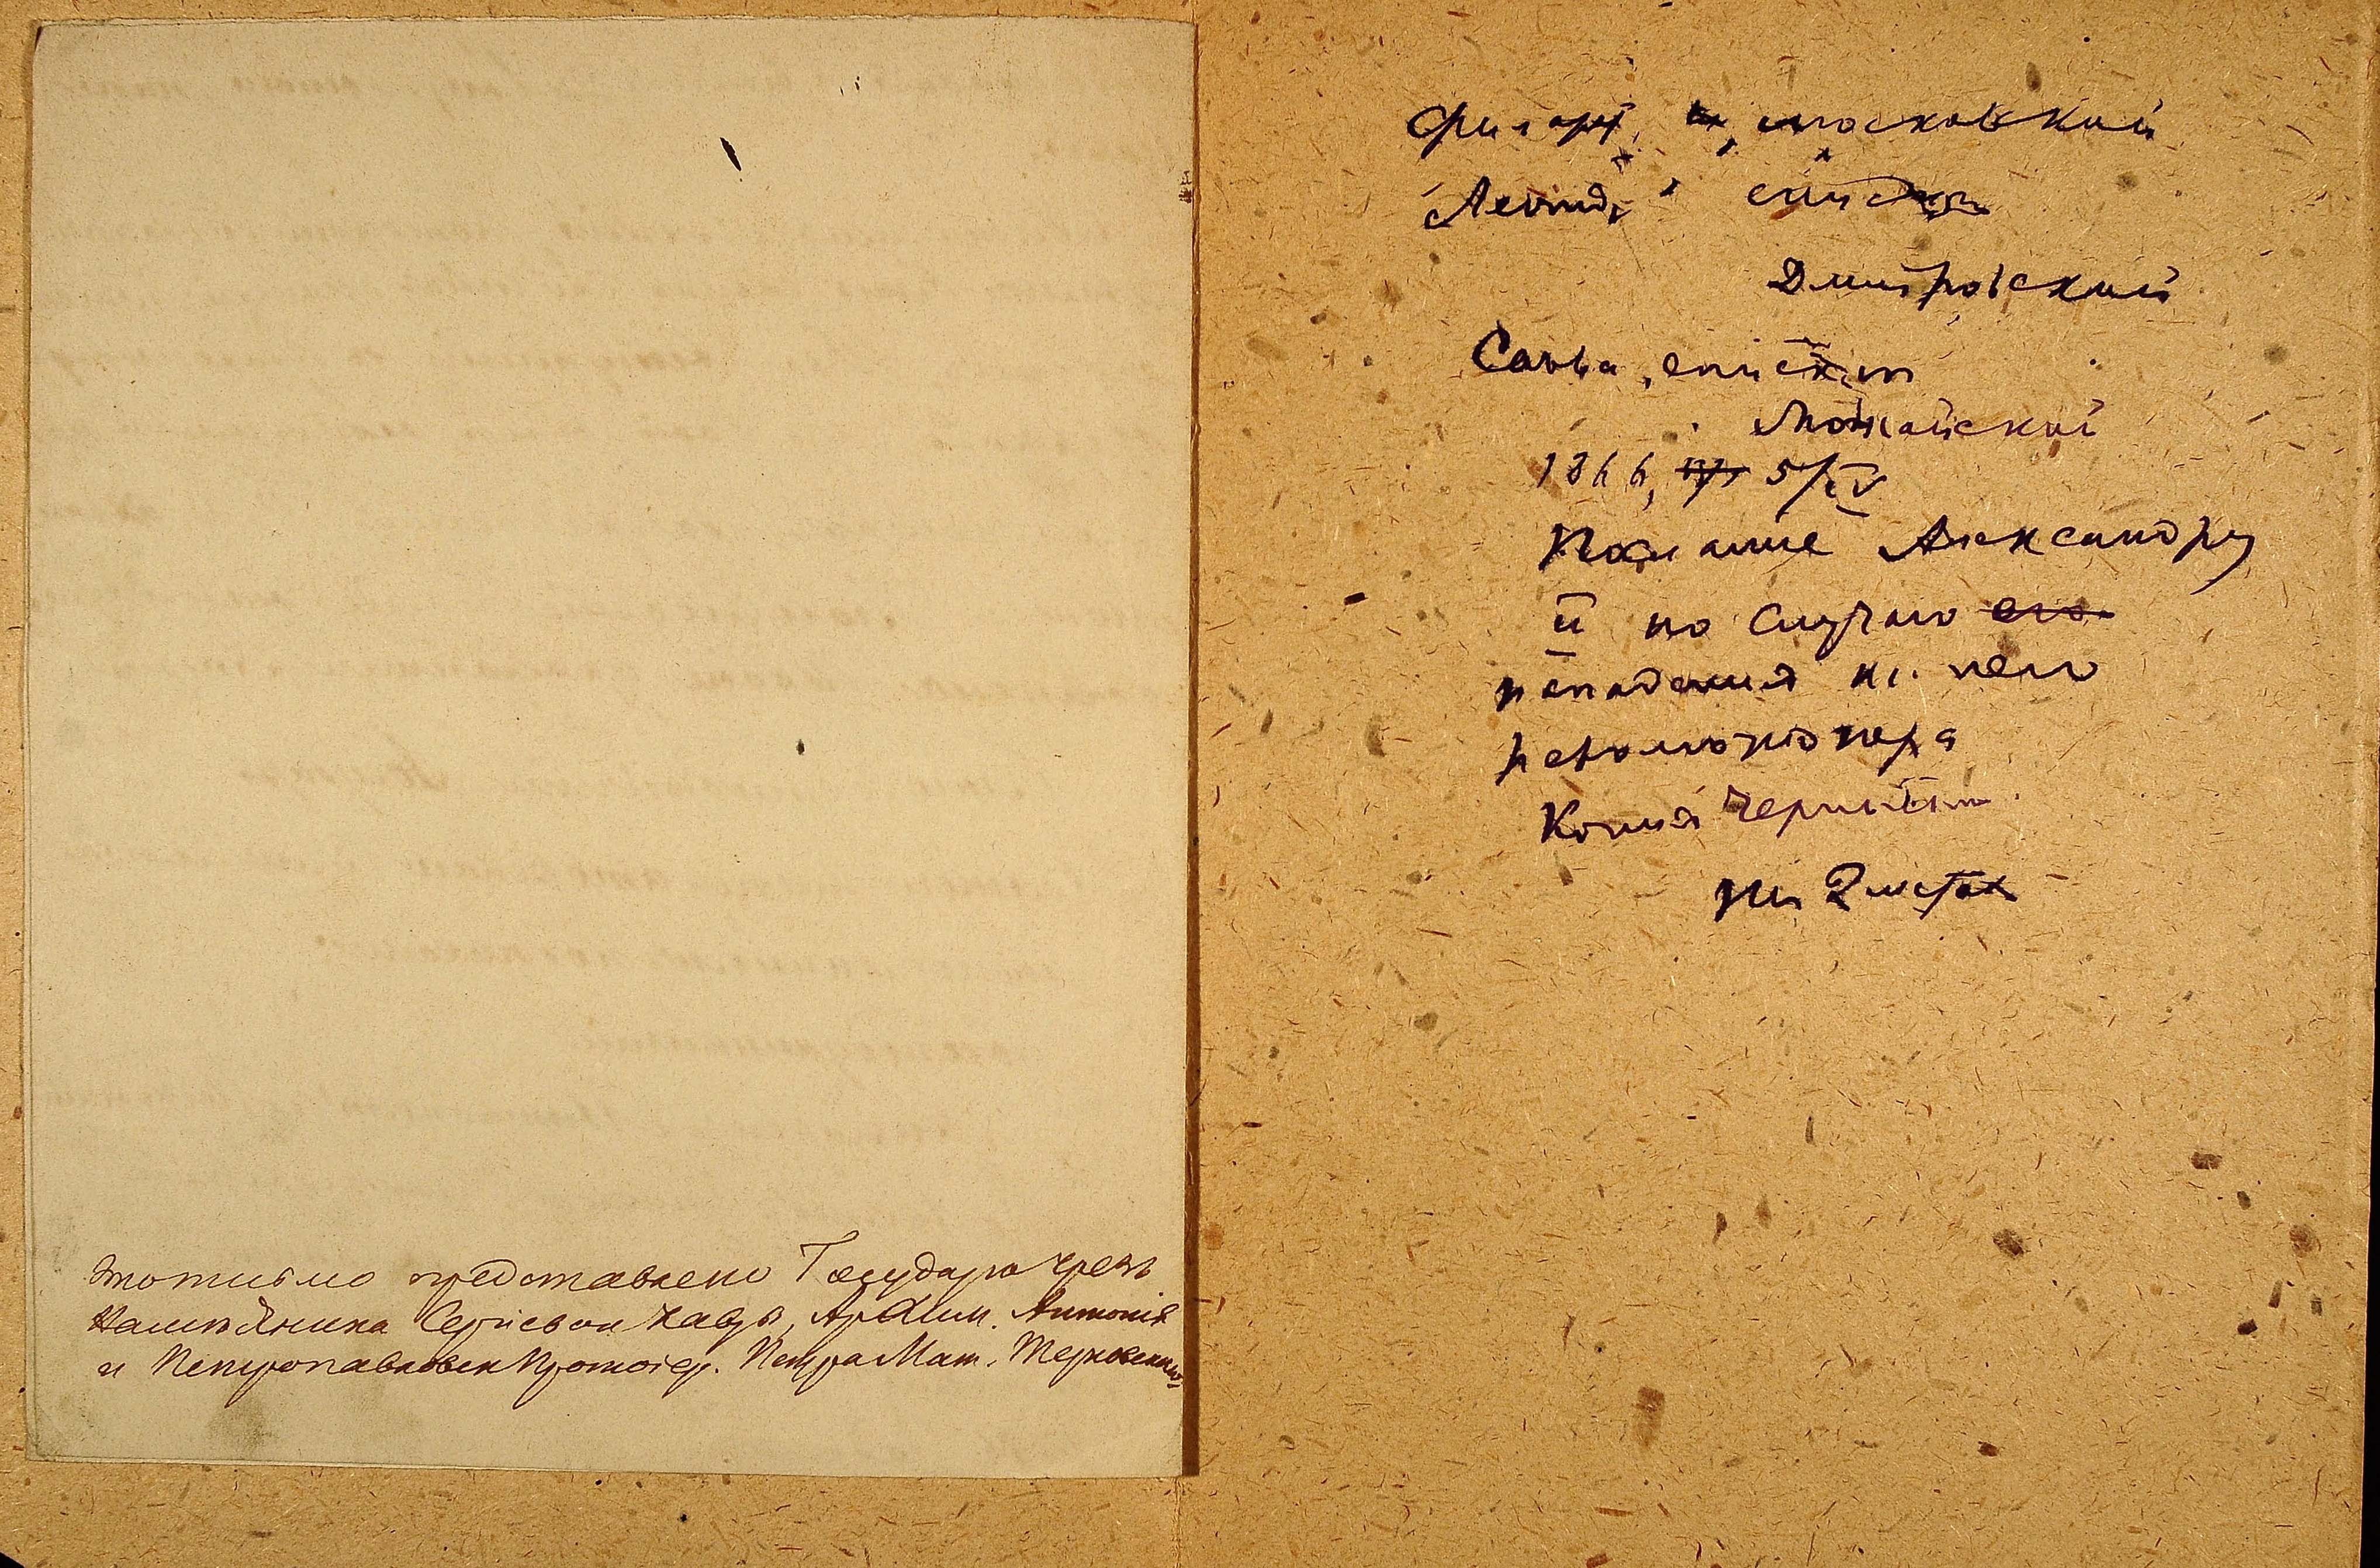 Это письмо представлено Государю чрезъ
Намѣстника Сергіевой Лавры, Архим. Антонія
и Петропавловск Протоіер. Петра Мат. Терновскаго
Филарет, московский
Леонид, епископ
Дмитровский
Савва, епископ
Можайский
1866, 5/IV
Послание Александру
II по случаю его
нападения на него
революционера
Копия
на 2 листах